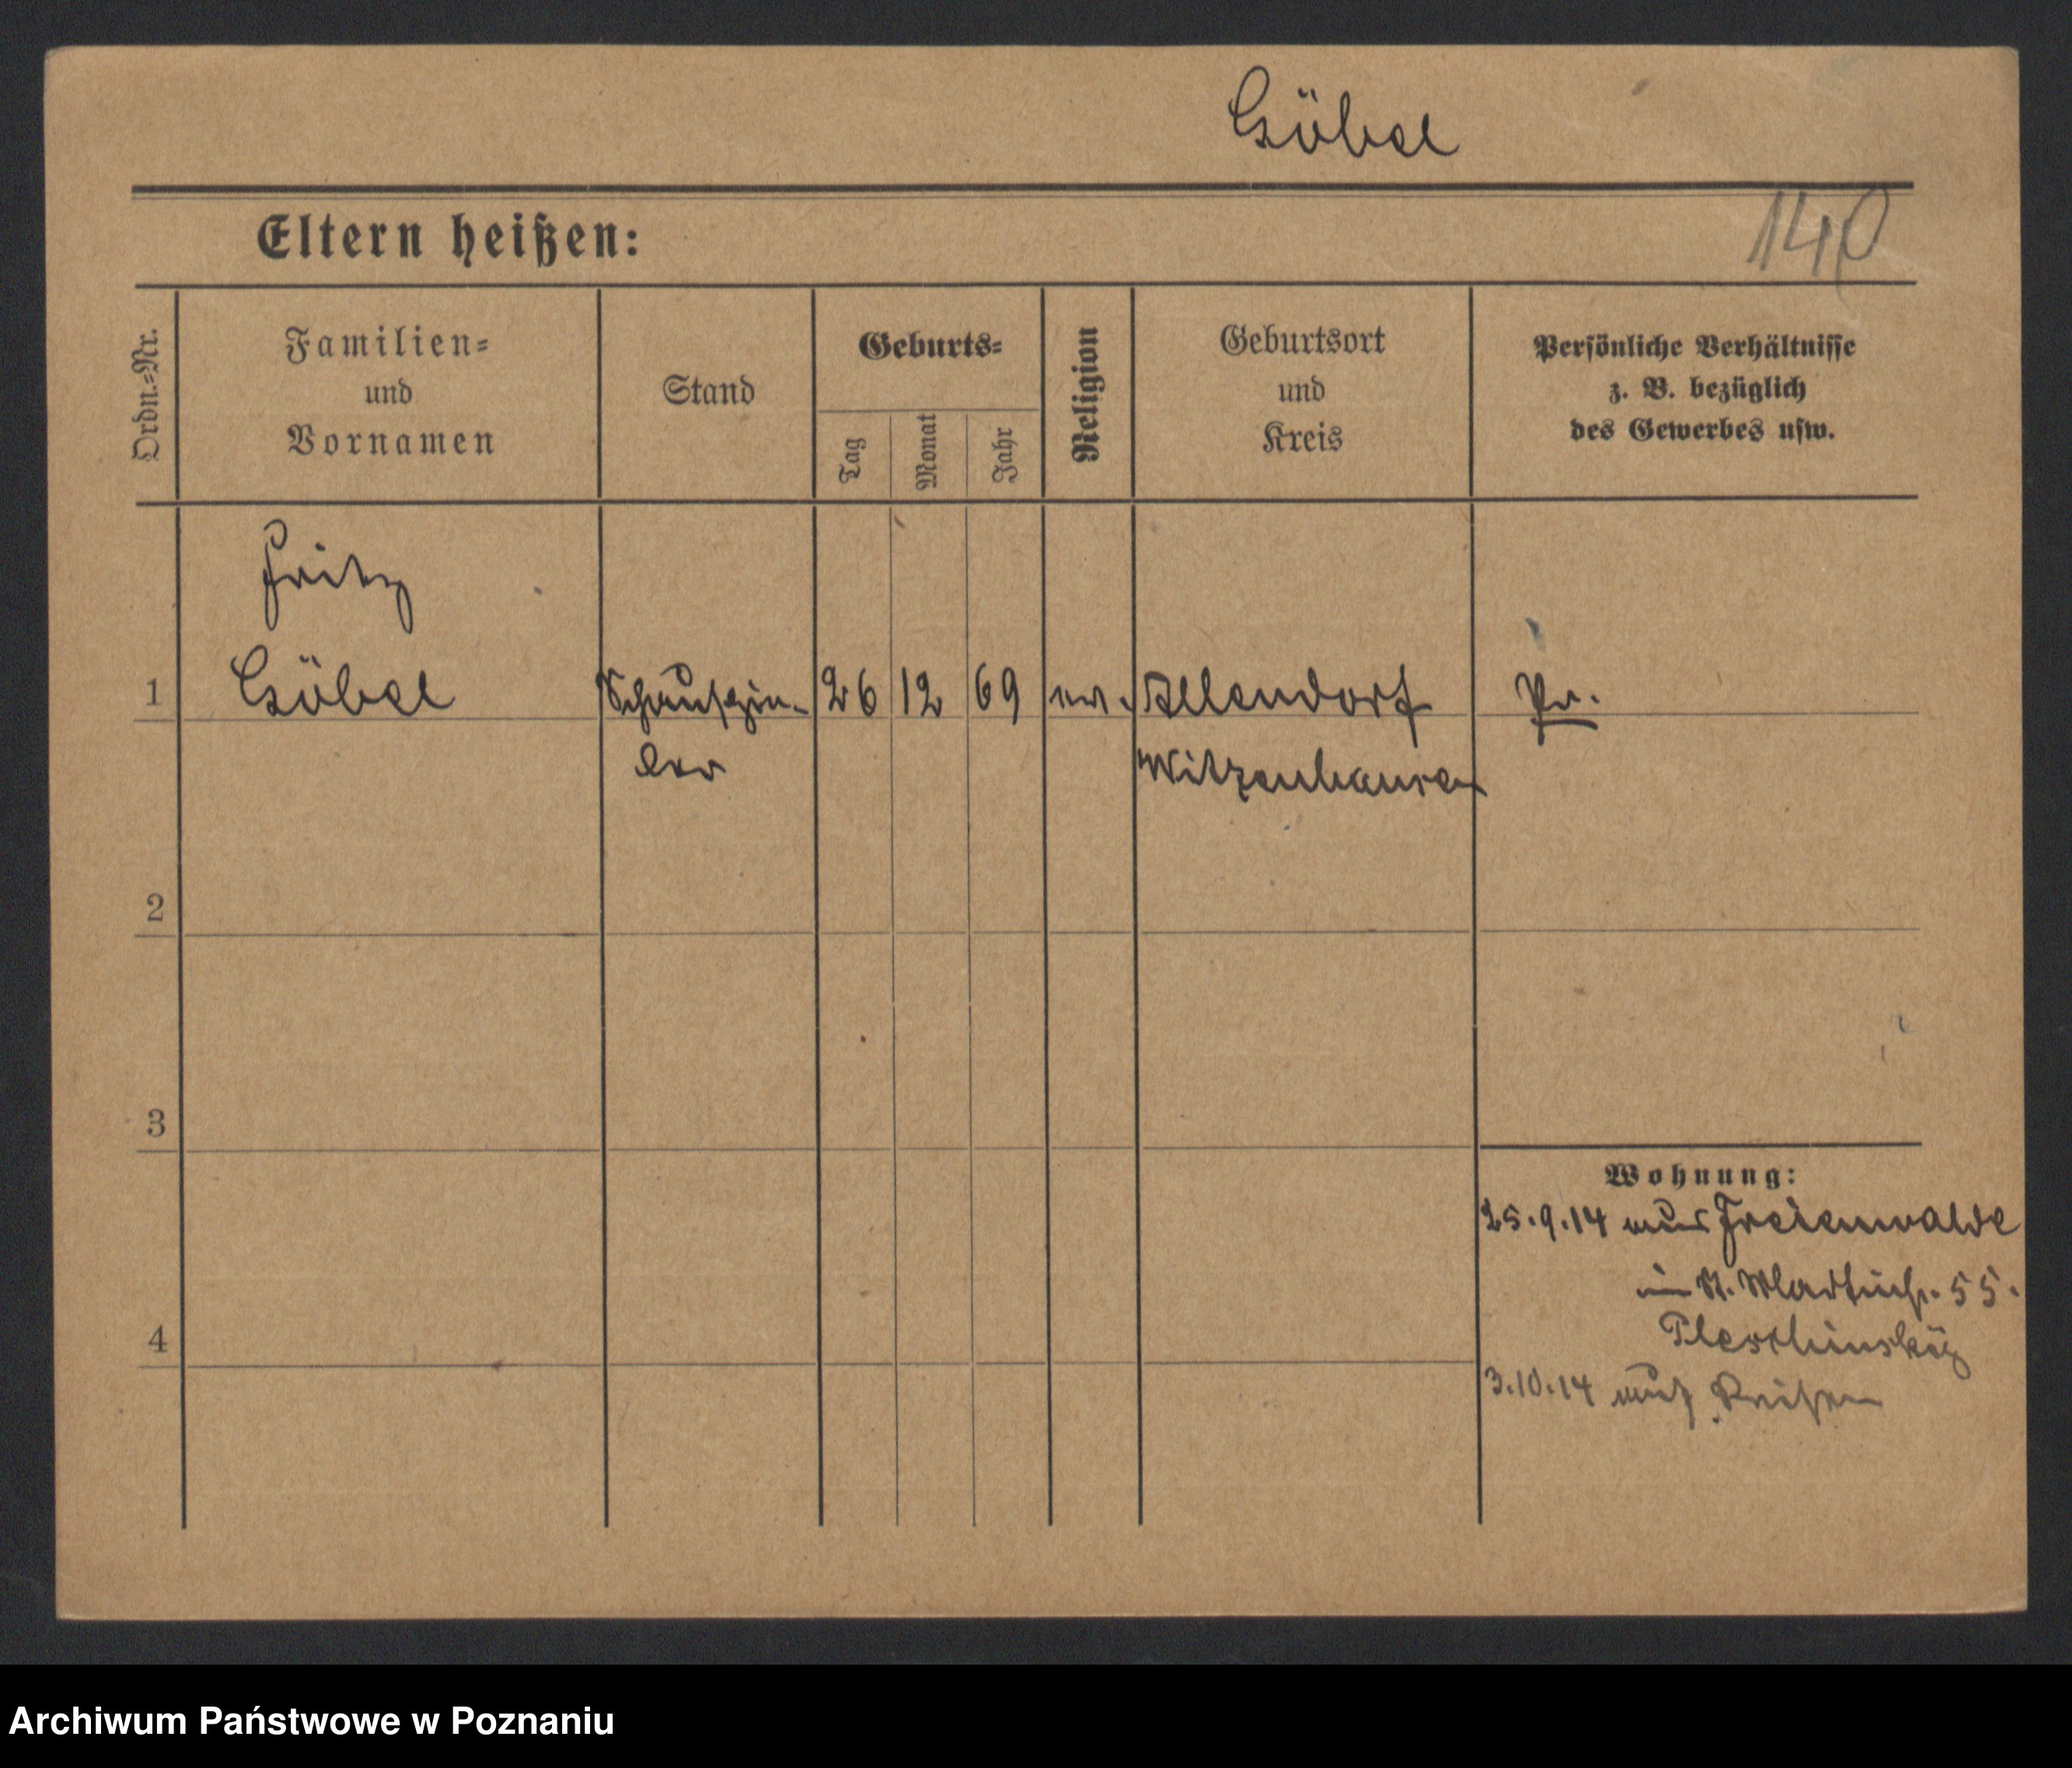 Göbel
Eltern heißen:
140
Ordn.=Nr.
Familien=
und
Vornamen
Stand
Geburts=
Tag
Monat
Jahr
Religion
Geburtsort
und
Kreis
Persönliche Verhältnisse
z. B. bezüglich
des Gewerbes usw.
Fritz
1 Göbel Schauspie- 26 12 69 ev. Allendorf Pr.
ler Witzenhausen
2
3
Wohnung:
25.9.14 aus Freienwalde
in St. 55.
4
3.10.14 auf Reisen
Archiwum Państwowe w Poznaniu